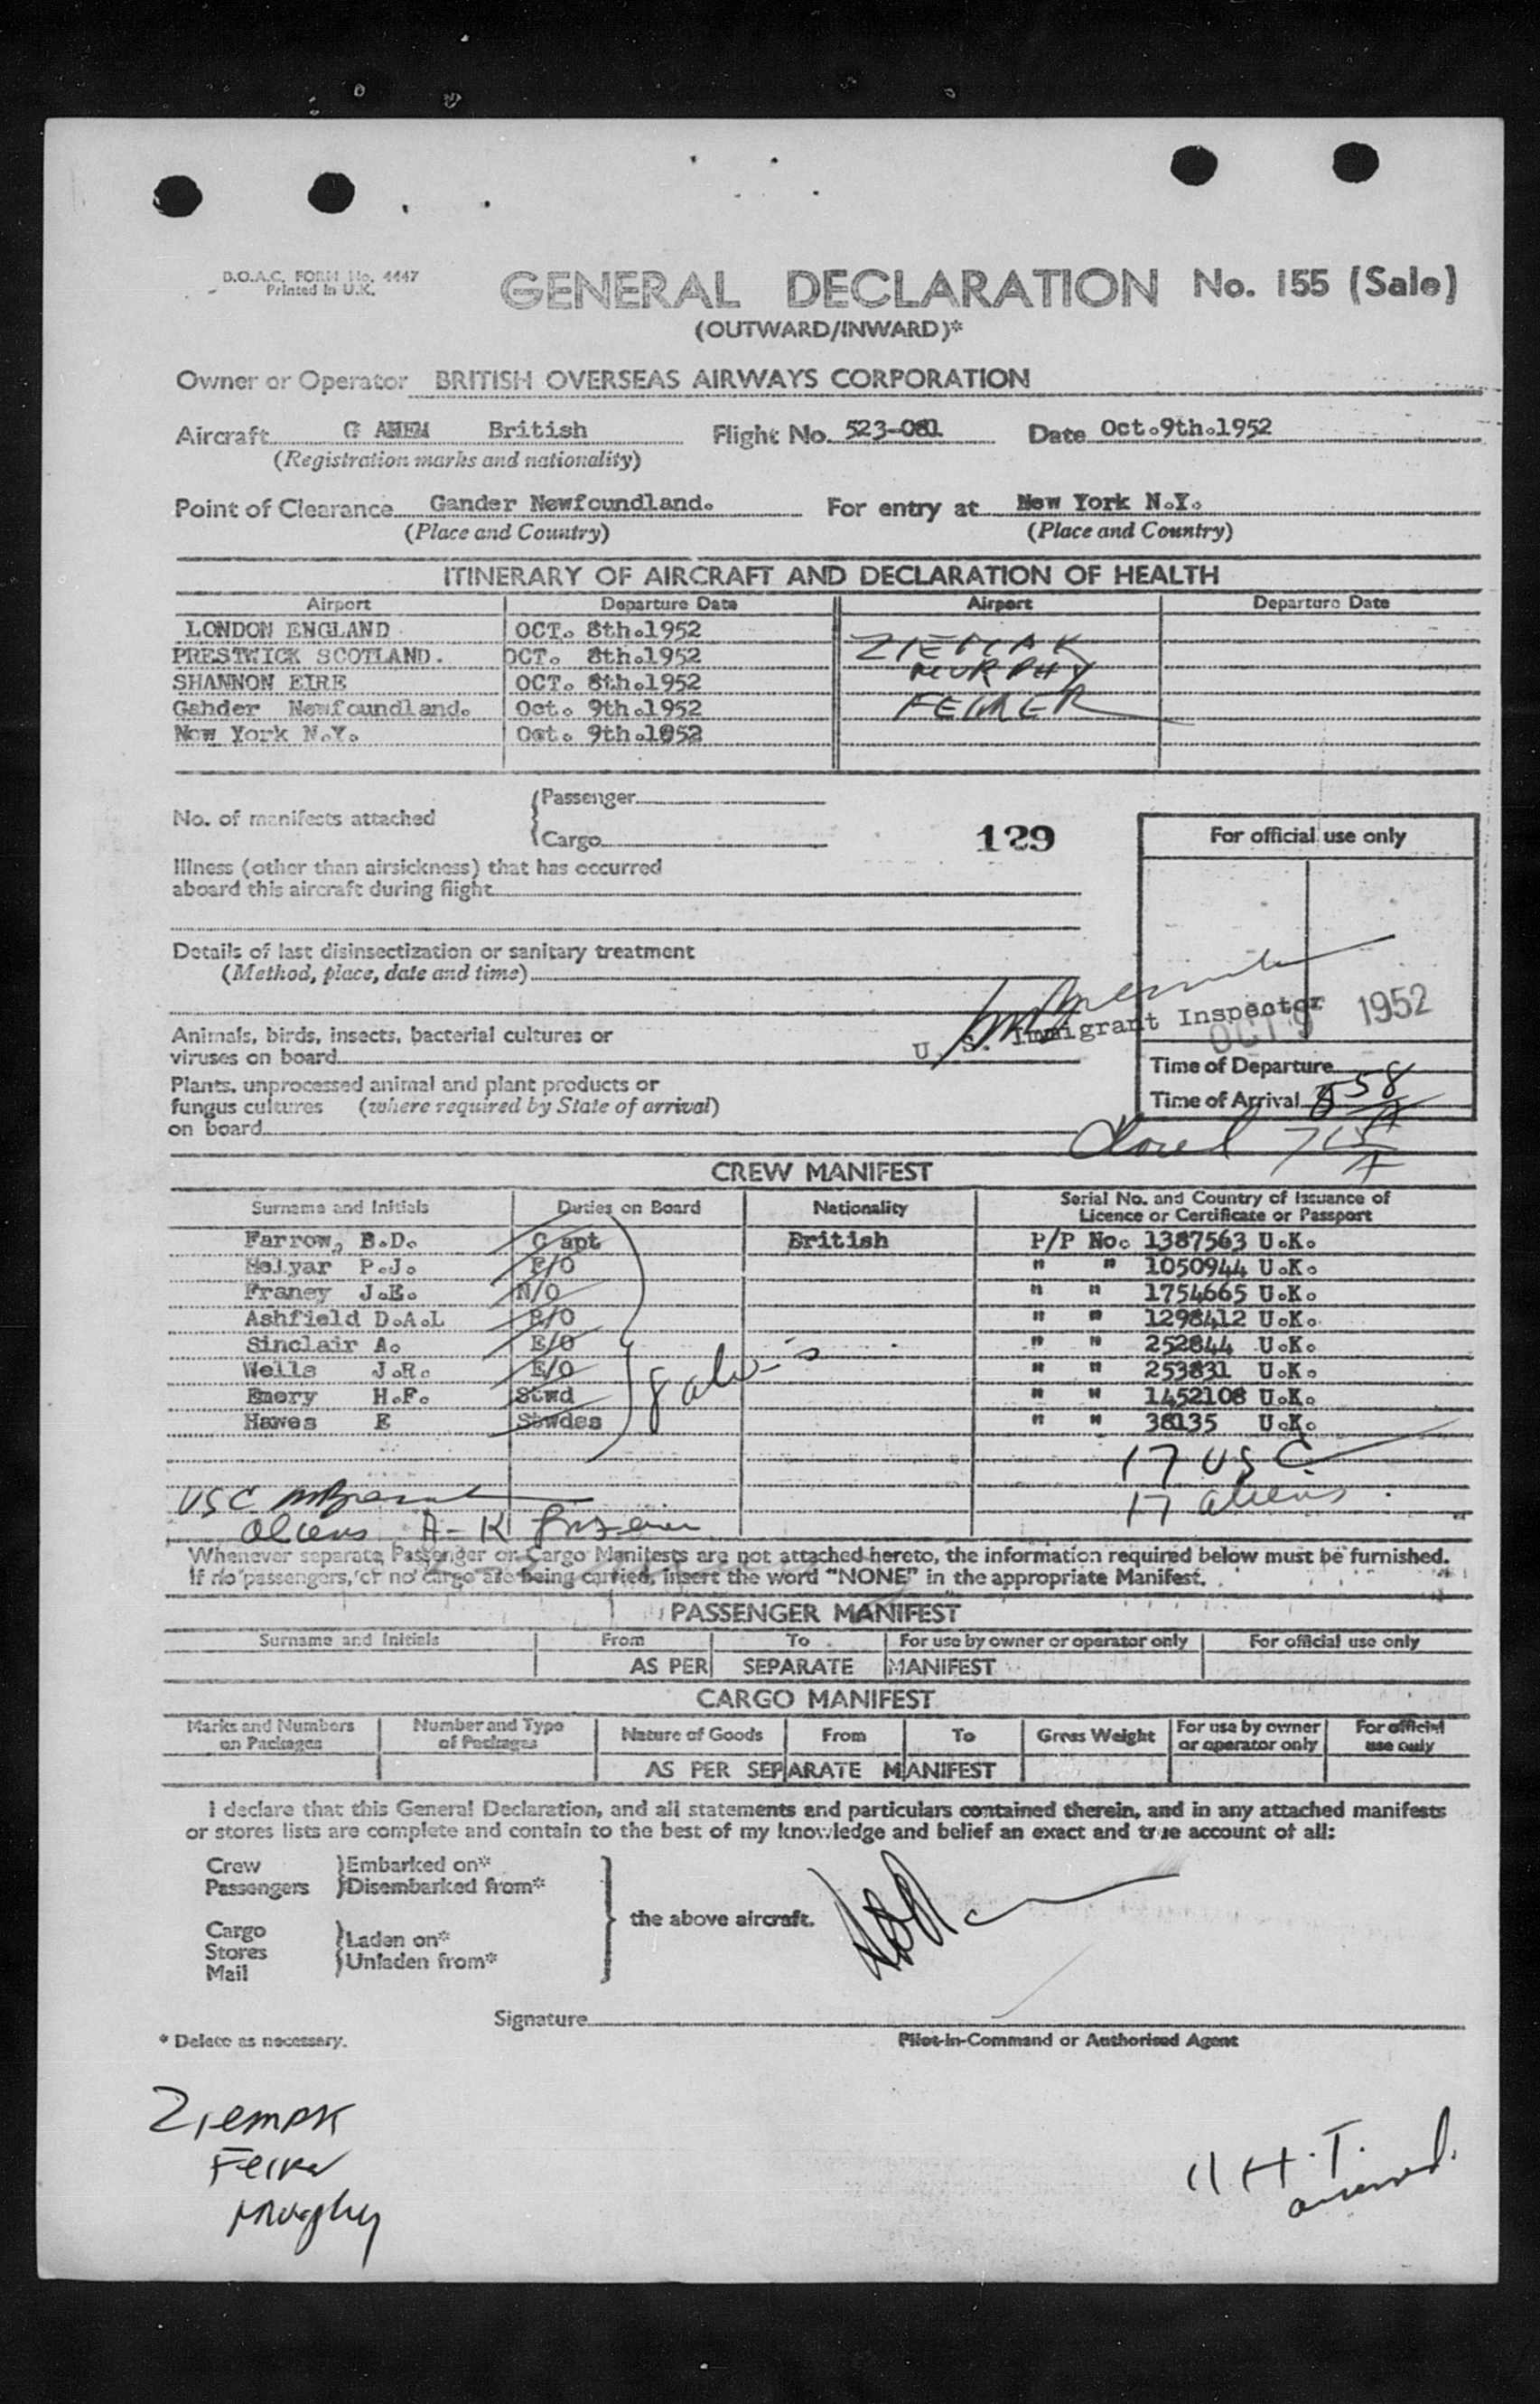 B.O.A.C. FORM No. 4447
Printed in U.K.
GENERAL DECLARATION No. 155 (Sale)
(OUTWARD/INWARD)*
Owner or Operator BRITISH OVERSEAS AIRWAYS CORPORATION
Aircraft G AHEM British Flight No. 523-081 Date Oct.9th.1952
(Registration marks and nationality)
Point of Clearance Gander Newfoundland. For entry at New York N.Y.
(Place and Country) (Place and Country)
ITINERARY OF AIRCRAFT AND DECLARATION OF HEALTH
Airport Departure Date Airport Departure Date
LONDON ENGLAND OCT. 8th.1952
PRESTWICK SCOTLAND. OCT. 8th.1952 ZIEMAK
SHANNON EIRE OCT. 8th.1952 MURPHY
Gahder Newfoundland. Oct. 9th.1952
New York N.Y. Oct. 9th.1952
No. of manifests attached
Passenger
Cargo
129
For official use only
Illness (other than airsickness) that has occurred
aboard this aircraft during flight
Details of last disinsectization or sanitary treatment
(Method, place, date and time)
U. S. Immigrant Inspector
OCT 9 1952
Animals, birds, insects, bacterial cultures or
viruses on board
Time of Departure
Plants, unprocessed animal and plant products or
fungus cultures (where required by State of arrival)
on board
Time of Arrival 658
A
Closed 715
A
CREW MANIFEST
Surname and Initials Duties on Board Nationality Serial No. and Country of Issuance of
Licence or Certificate or Passport
Farrow, B.D. C apt British P/P No. 1387563 U.K.
Helyar P.J. F/O " " 1050944 U.K.
Franey J.E. N/O " " 1754665 U.K.
Ashfield D.A.L R/O " " 1298412 U.K.
Sinclair A. E/O " " 252844 U.K.
Wells J.R. E/O " " 253831 U.K.
Emery H.F. Stwd " " 1452108 U.K.
Hawes E Stwdes " " 38135 U.K.
17 USC
USC 17 aliens
aliens A-K
Whenever separate Passenger or Cargo Manifests are not attached hereto, the information required below must be furnished.
If no passengers, or no cargo are being carried, insert the word "NONE" in the appropriate Manifest.
PASSENGER MANIFEST
Surname and Initials From To For use by owner or operator only For official use only
AS PER SEPARATE MANIFEST
CARGO MANIFEST
Marks and Numbers on Packages Number and Type of Packages Nature of Goods From To Gross Weight For use by owner or operator only For official use only
AS PER SEPARATE MANIFEST
I declare that this General Declaration, and all statements and particulars contained therein, and in any attached manifests
or stores lists are complete and contain to the best of my knowledge and belief an exact and true account of all:
Crew Embarked on*
Passengers Disembarked from*
the above aircraft.
Cargo
Stores Laden on*
Mail Unladen from*
Signature
* Delete as necessary. Pilot-in-Command or Authorised Agent
Ziemak
Murphy
11 H.T.